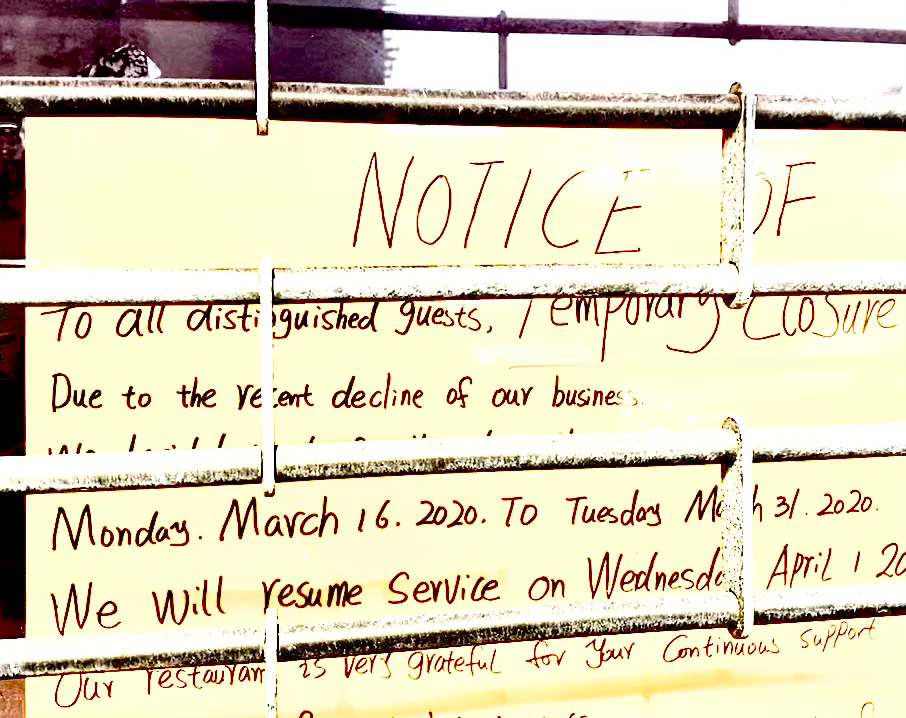 NOTICE OF
Temporary Closure
To all distinguished guests,
Due to the recent decline of our business.
Monday. March 16. 2020. To Tuesday March 31. 2020.
We Will resume Service on Wednesday April 1 20
Our restaurant is very grateful for Your Continuous support